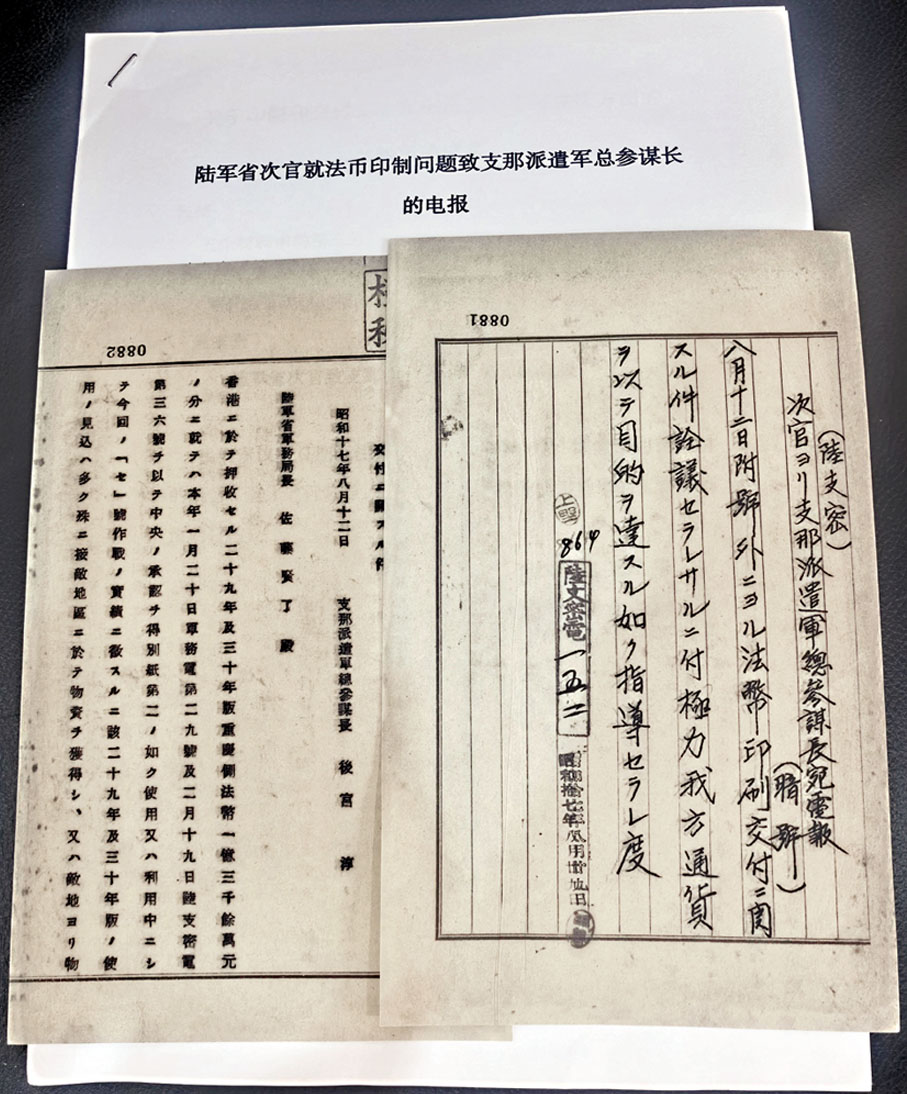 陆军省次官就法币印制问题致支那派遣军总参谋长
的电报
0881
(陸支密)
次官ヨリ支那派遣軍總參謀長宛電報
(暗號)
八月十二日附號外ニヨル法幣印刷交付ニ関
スル件詮議セラレサルニ付極力我方通貨
ヲ以テ目的ヲ達スル如ク指導セラレ度
864
陸支密電一五二
昭和拾七年八月廿九日
0882
昭和十七年八月十二日 支那派遣軍總參謀長 後宮 淳
陸軍省軍務局長 佐藤賢了殿
香港ニ於テ押收セル二十九年及三十年版重慶側法幣一億三千餘萬元
ノ分ニ就テハ本年一月二十日軍務電第二九號及二月十九日陸支密電
第三六號ヲ以テ中央ノ承認ヲ得別紙第二ノ如ク使用又ハ利用中ニシ
テ今回ノ「セ」號作戰ノ實績ニ徴スルニ該二十九年及三十年版ノ使
用ノ見込ハ多ク殊ニ接敵地區ニ於テ物資ヲ獲得シ、又ハ敵地ヨリ物